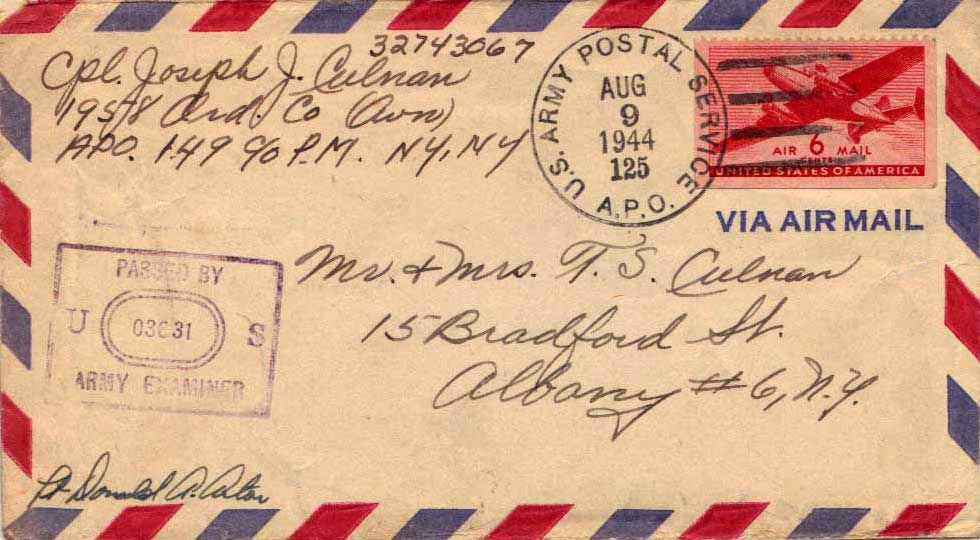 32743067
Cpl. Joseph J. Culnan
1958 Ord. Co (Avn)
A.P.O. 149 c/o P.M. N.Y., N.Y
U.S. ARMY POSTAL SERVICE
AUG
9
1944
125
A.P.O.
6
AIR MAIL
CENTS
UNITED STATES OF AMERICA
VIA AIR MAIL
PASSED BY
U 03C31 S
ARMY EXAMINER
Mr. + Mrs. T. S. Culnan
15 Bradford St.
Albany #6, N.Y.
Lt Donald A.